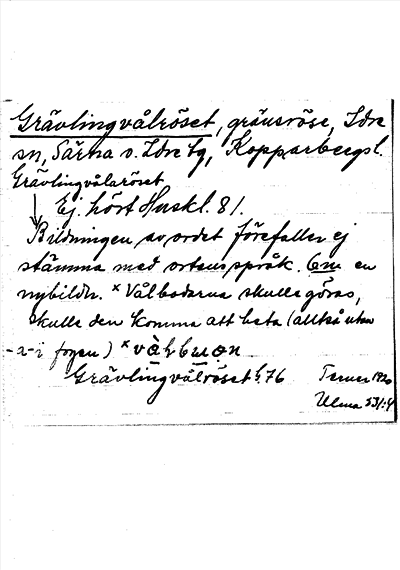 Grävlingvålröset, gränsröse, Idre
sn, Särna o. Idre tg, Kopparbergs l.
Grävlingvålaröset
Ej hört Huskl. 81.
Bildningen av ordet förefaller ej
stämma med ortens språk. Om en
nybildn. ˣVålbodarna skulle göras,
skulle den komma att heta (alltså utan
-a- i fogen)
Grävlingvålröset h. 76 Terner 1920
Ulma 531:4